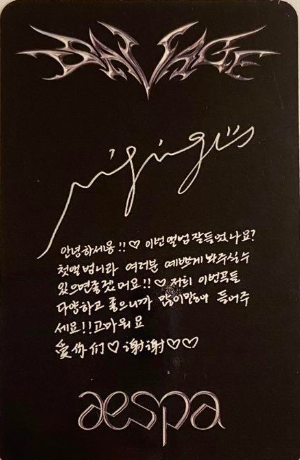 SAVAGE
ningning's
안녕하세용!!♡ 이번 앨범 잘 들었나요?
첫앨범니라 여러분 예쁘게 봐주실수
있으면좋겠어요!!♡ 저희 이번곡들
다양하고 좋으니까 많이많애 들어주
세요!!고마워요
愛你们♡谢谢♡♡
aespa